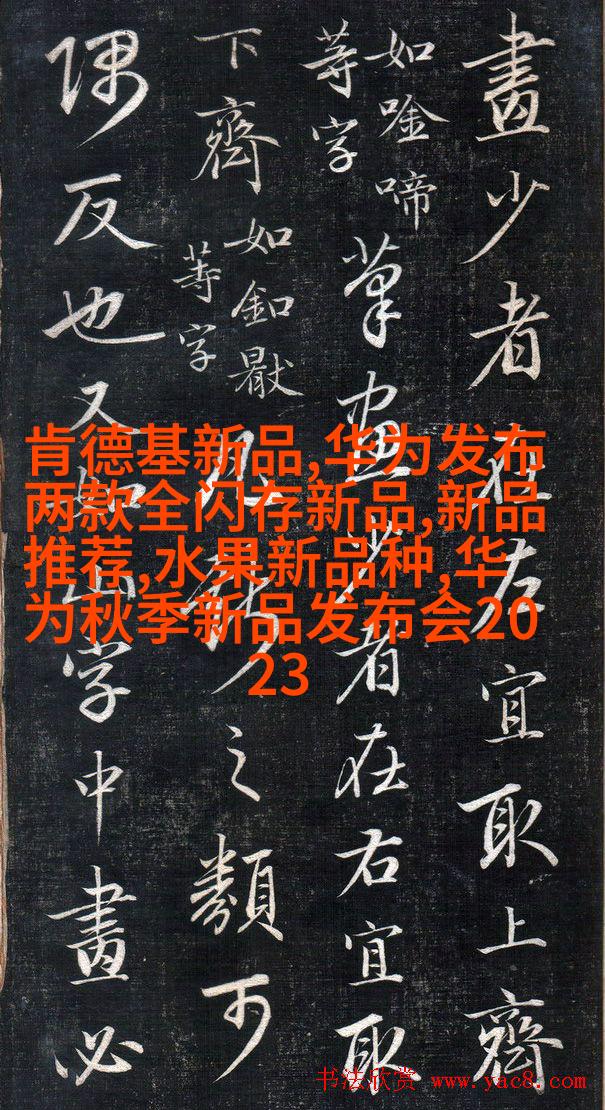 畫少者在左宜取上齊
如唫啼
等字
筆畫少者在右宜取
下齊
如釦
等字
之類可
隅反也又如山字中畫必
肯德基新品,华为发布
两款全闪存新品,新品
推荐,水果新品种,华
为秋季新品发布会20
23
书法欣赏 www.yac8.com